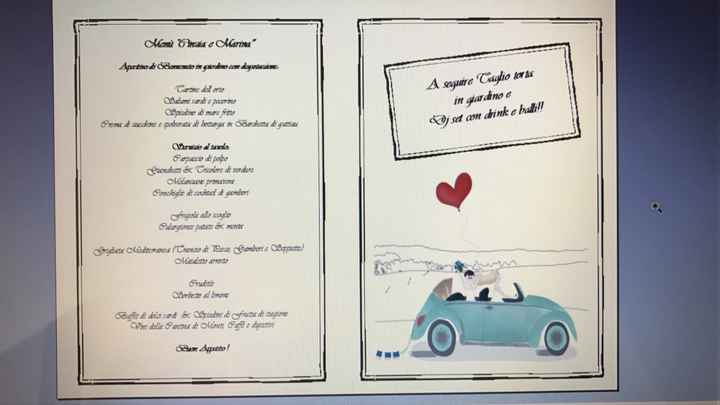 Menù "Omaia e Marina"
Aperitivo di Benvenuto in giardino con degustazione.
Tartine dell'orto
Salumi sardi e pecorino
Spiedino di mare fritto
Crema di zucchine e spolverata di bottarga in Barchetta di guttiau
Servizio al tavolo.
Carpaccio di polpo
Guancetti & Tricolore di verdura
Melanzane primavera
Conchiglie di cocktail di gamberi
Fregola allo scoglio
Culurgiones patate & menta
Grigliata Mediterranea (Trancio di Pesce, Gamberi e Seppiette)
Maialetto arrosto
Crudità
Sorbetto al limone
Buffet di dolci sardi & Spiedini di Frutta di stagione
Vini della Cantina di Monti, Caffè e digestivi
Buon Appetito!
A seguire Taglio torta
in giardino e
Dj set con drink e balli!!